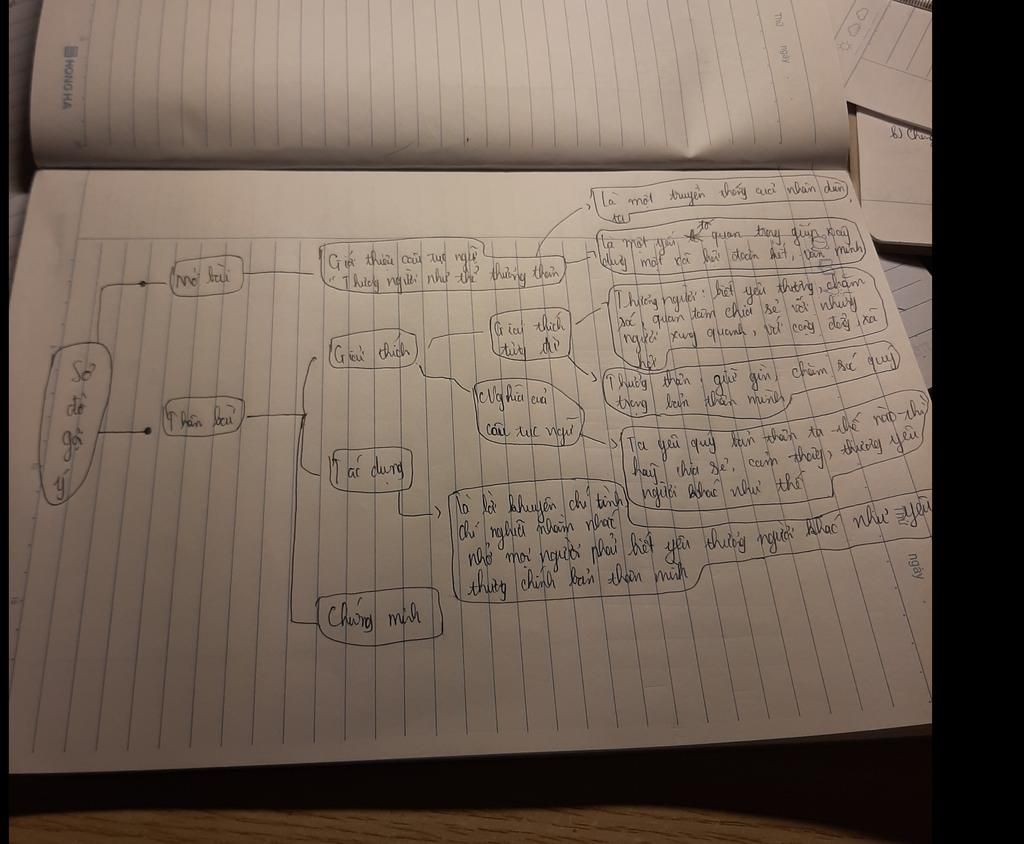 HONG HA
Thứ ngày
Sơ đồ gợi ý
Mở bài
Giới thiệu câu tục ngữ
"Thương người như thể thương thân
Là một truyền thống của nhân dân
ta
Là một yếu tố quan trọng giúp xây
dựng một xã hội đoàn kết, văn minh
Thân bài
Giải thích
Giải thích
từng
Thương người: biết yêu thương, chăm
sóc, quan tâm chia sẻ với những
người xung quanh, với cộng đồng, xã
hội
Thương thân: giữ gìn, chăm sóc quý
trọng bản thân mình
Nghĩa của
câu tục ngữ
Ta yêu quý bản thân ta thế nào thì
hãy chia sẻ, cảm thông, thương yêu
người khác như thế
Tác dụng
là lời khuyên chí tình
chí nghĩa nhằm nhắc
nhở mọi người phải biết yêu thương người khác như yêu
thương chính bản thân mình
Chứng minh
Thứ
ngày